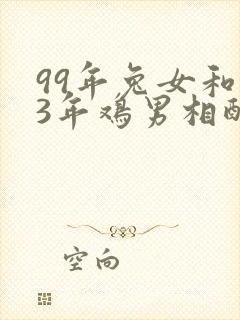 99年兔女和
3年鸡男相配
空向